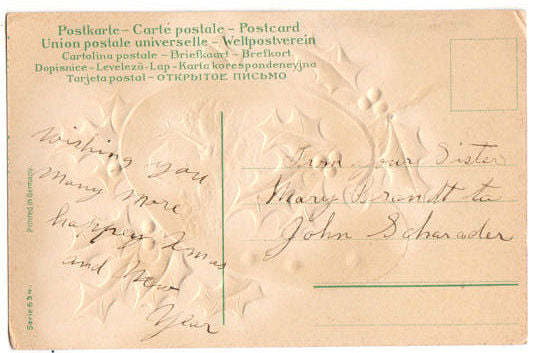 Postkarte – Carté postale – Postcard
Union postale universelle – Weltpostverein
Cartolina postale – Briefkaart – Brefkort
Dopisnice – Levelező-Lap – Karta korespondencyjna
Tarjeta postal – ОТКРЫТОЕ ПИСЬМО
Wishing you
many more
happey Xmas
and New
Year
From your Sister
Mary Brandt to
John Scharader
Printed in Germany.
Serie 694.